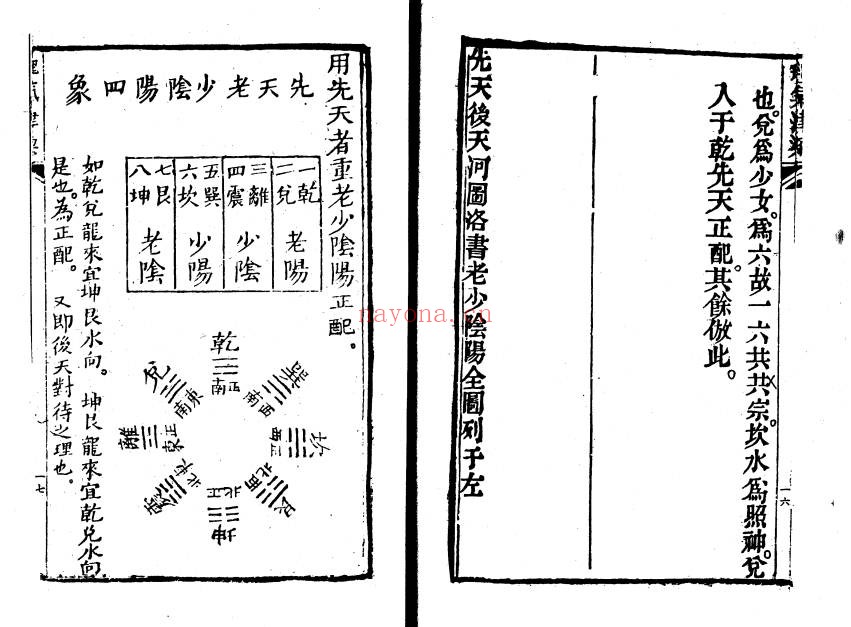 也。兌爲少女。爲六故一六共共宗。坎水爲照神。兌
入于乾先天正配。其餘倣此。
先天後天河圖洛書老少陰陽全圖列于左
一六
用先天者重老少陰陽正配。
先天老少陰陽四象
一乾 二兌 老陽
三離 四震 少陰
五巽 六坎 少陽
七艮 八坤 老陰
乾 正南
巽 西南
坎 正西
艮 西北
坤 正北
震 東北
離 正東
兌 東南
如乾兌龍來宜坤艮水向。坤艮龍來宜乾兌水向
是也。為正配。又即後天對待之理也。
一七
nayona.cn